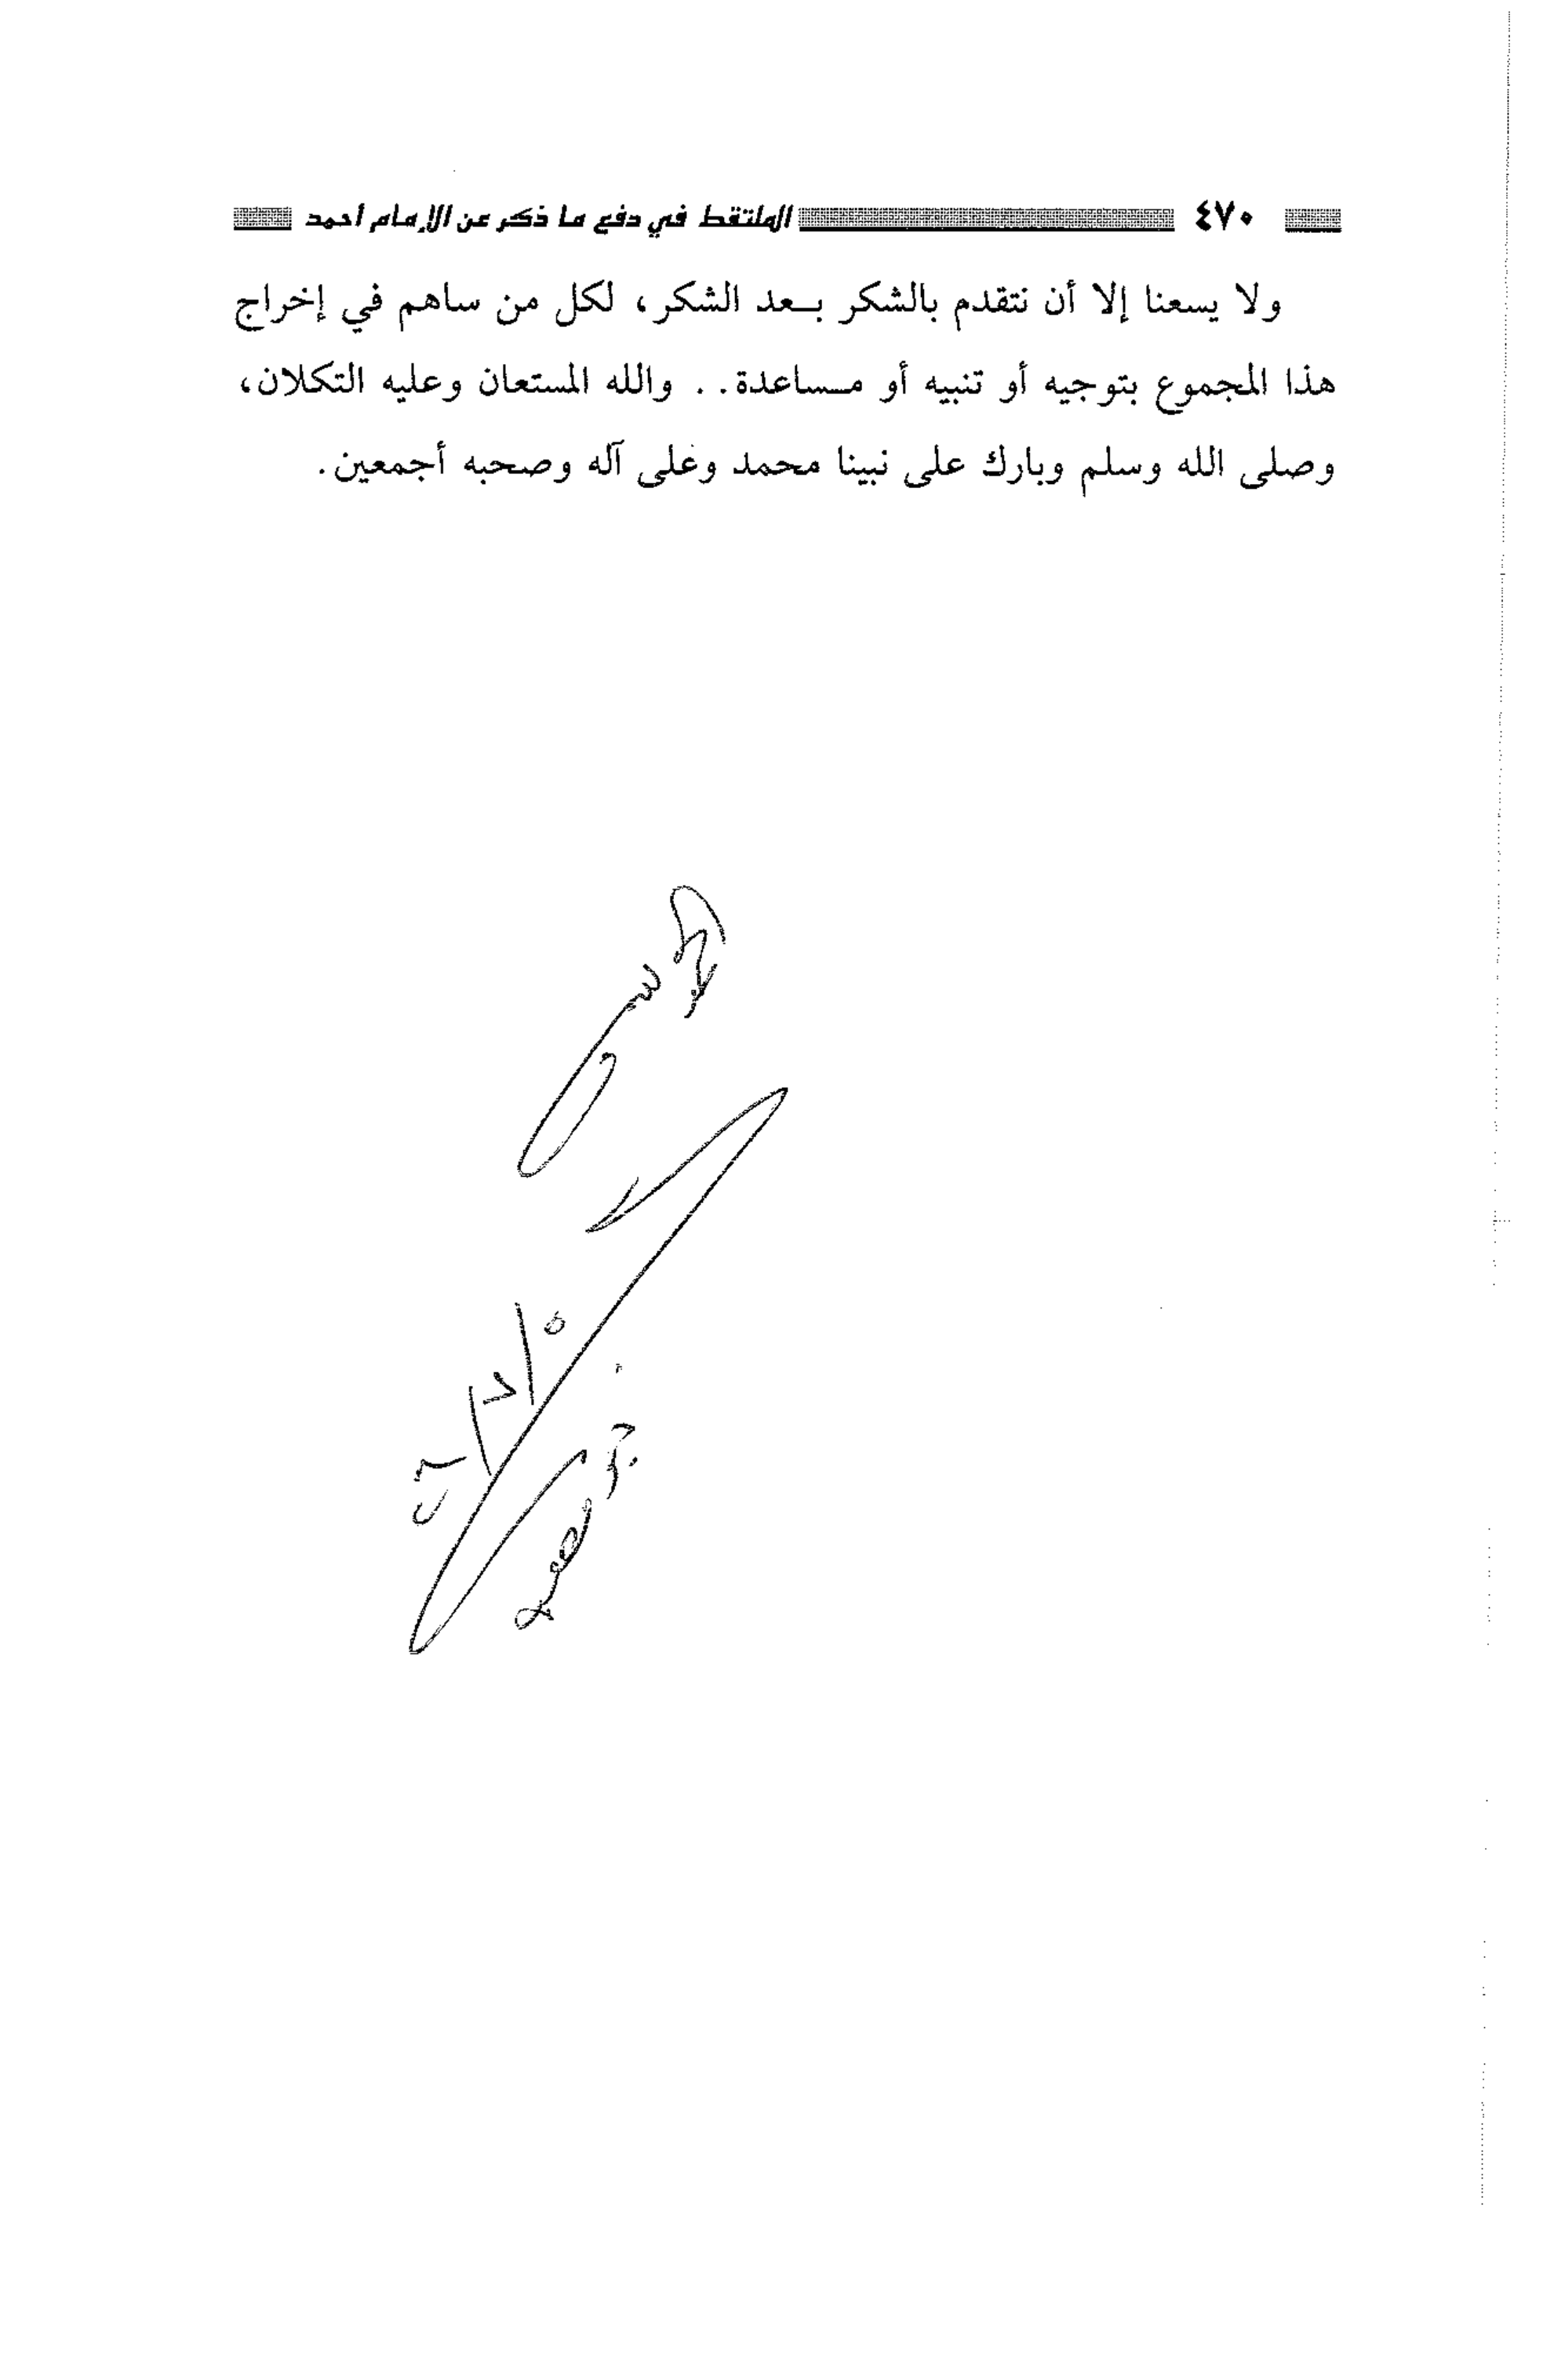 ٤٧٠ الملتقط في دفع ما ذكر عن الإمام أحمد
ولا يسعنا إلا أن نتقدم بالشكر بعد الشكر، لكل من ساهم في إخراج
هذا المجموع بتوجيه أو تنبيه أو مساعدة.. والله المستعان وعليه التكلان،
وصلى الله وسلم وبارك على نبينا محمد وعلى آله وصحبه أجمعين.